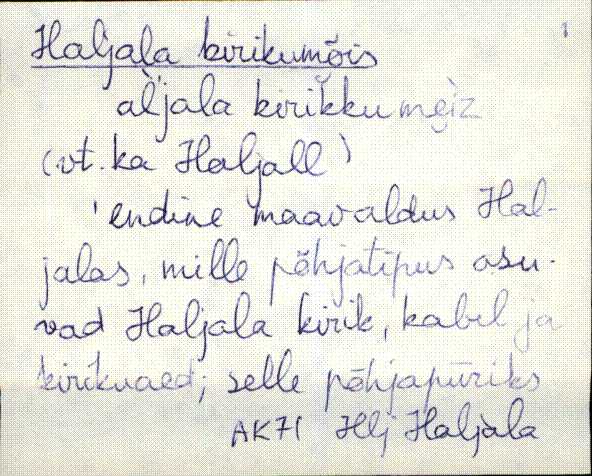 1
Haljala kirikumõis
äljala kirikku mẹìz
(vt. ka Haljall)
'endine maavaldus Hal-
jalas, mille põhjatipus asu-
vad Haljala kirik, kabel ja
kirikuaed; selle põhjapiiriks
AK71 Hlj Haljala